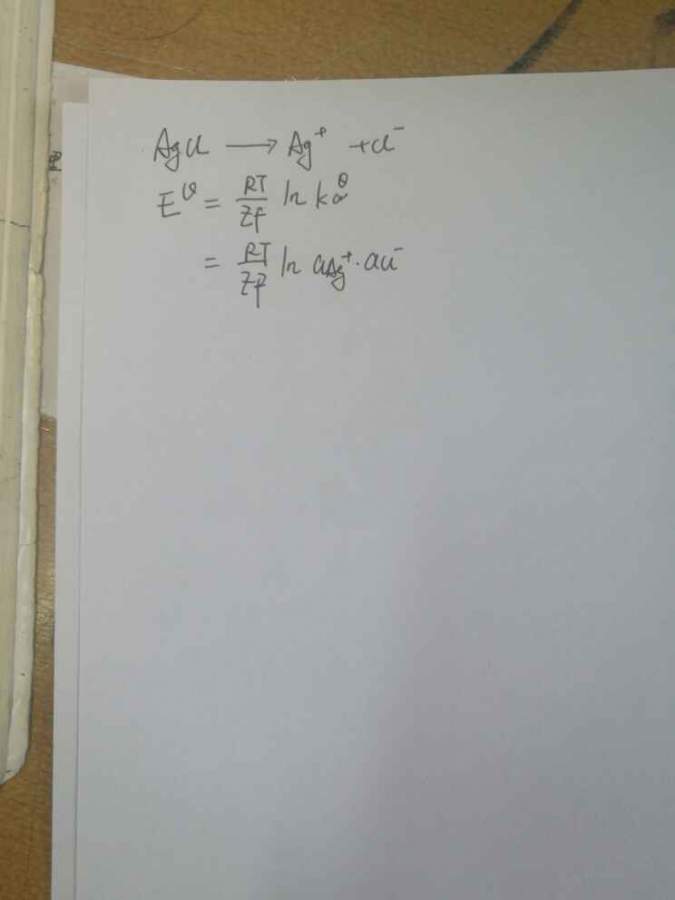 AgCl ⟶ Ag⁺ + Cl⁻
E^θ = RT/ZF ln k_a^θ
= RT/ZF ln a_Ag⁺ · a_Cl⁻